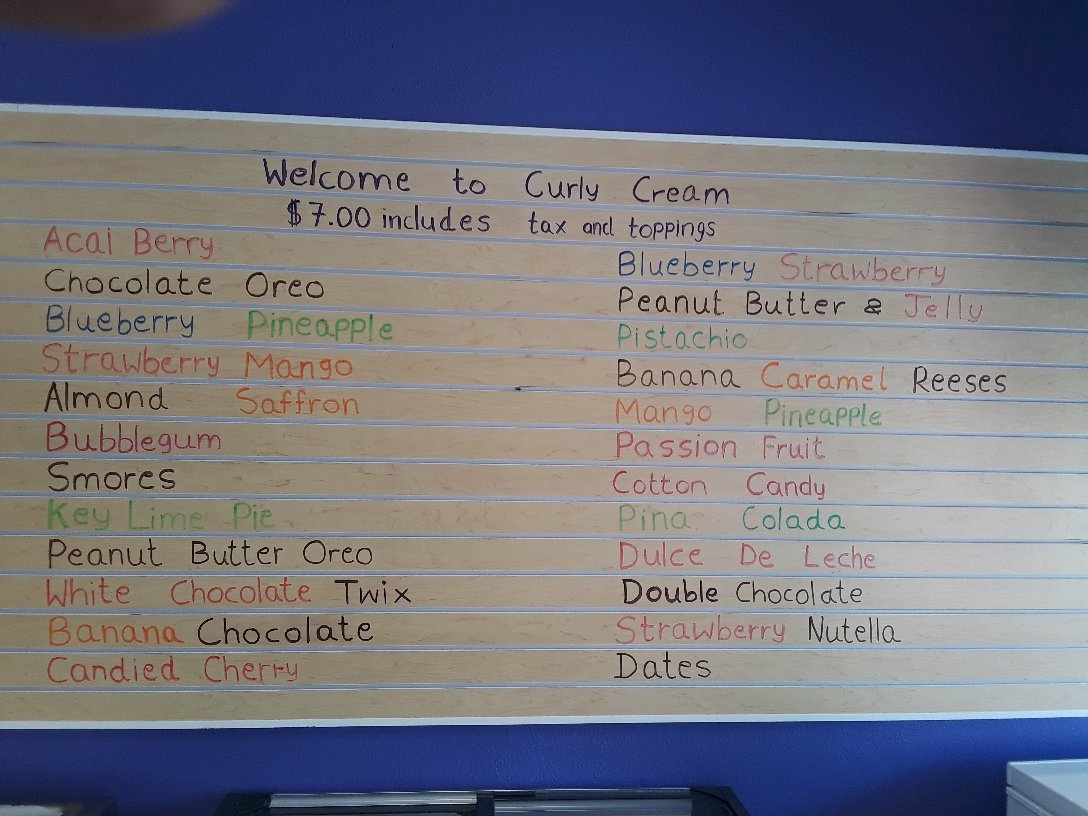 Welcome to Curly Cream
$7.00 includes tax and toppings
Acai Berry
Chocolate Oreo
Blueberry Pineapple
Strawberry Mango
Almond Saffron
Bubblegum
Smores
Key Lime Pie
Peanut Butter Oreo
White Chocolate Twix
Banana Chocolate
Candied Cherry
Blueberry Strawberry
Peanut Butter & Jelly
Pistachio
Banana Caramel Reeses
Mango Pineapple
Passion Fruit
Cotton Candy
Pina Colada
Dulce De Leche
Double Chocolate
Strawberry Nutella
Dates